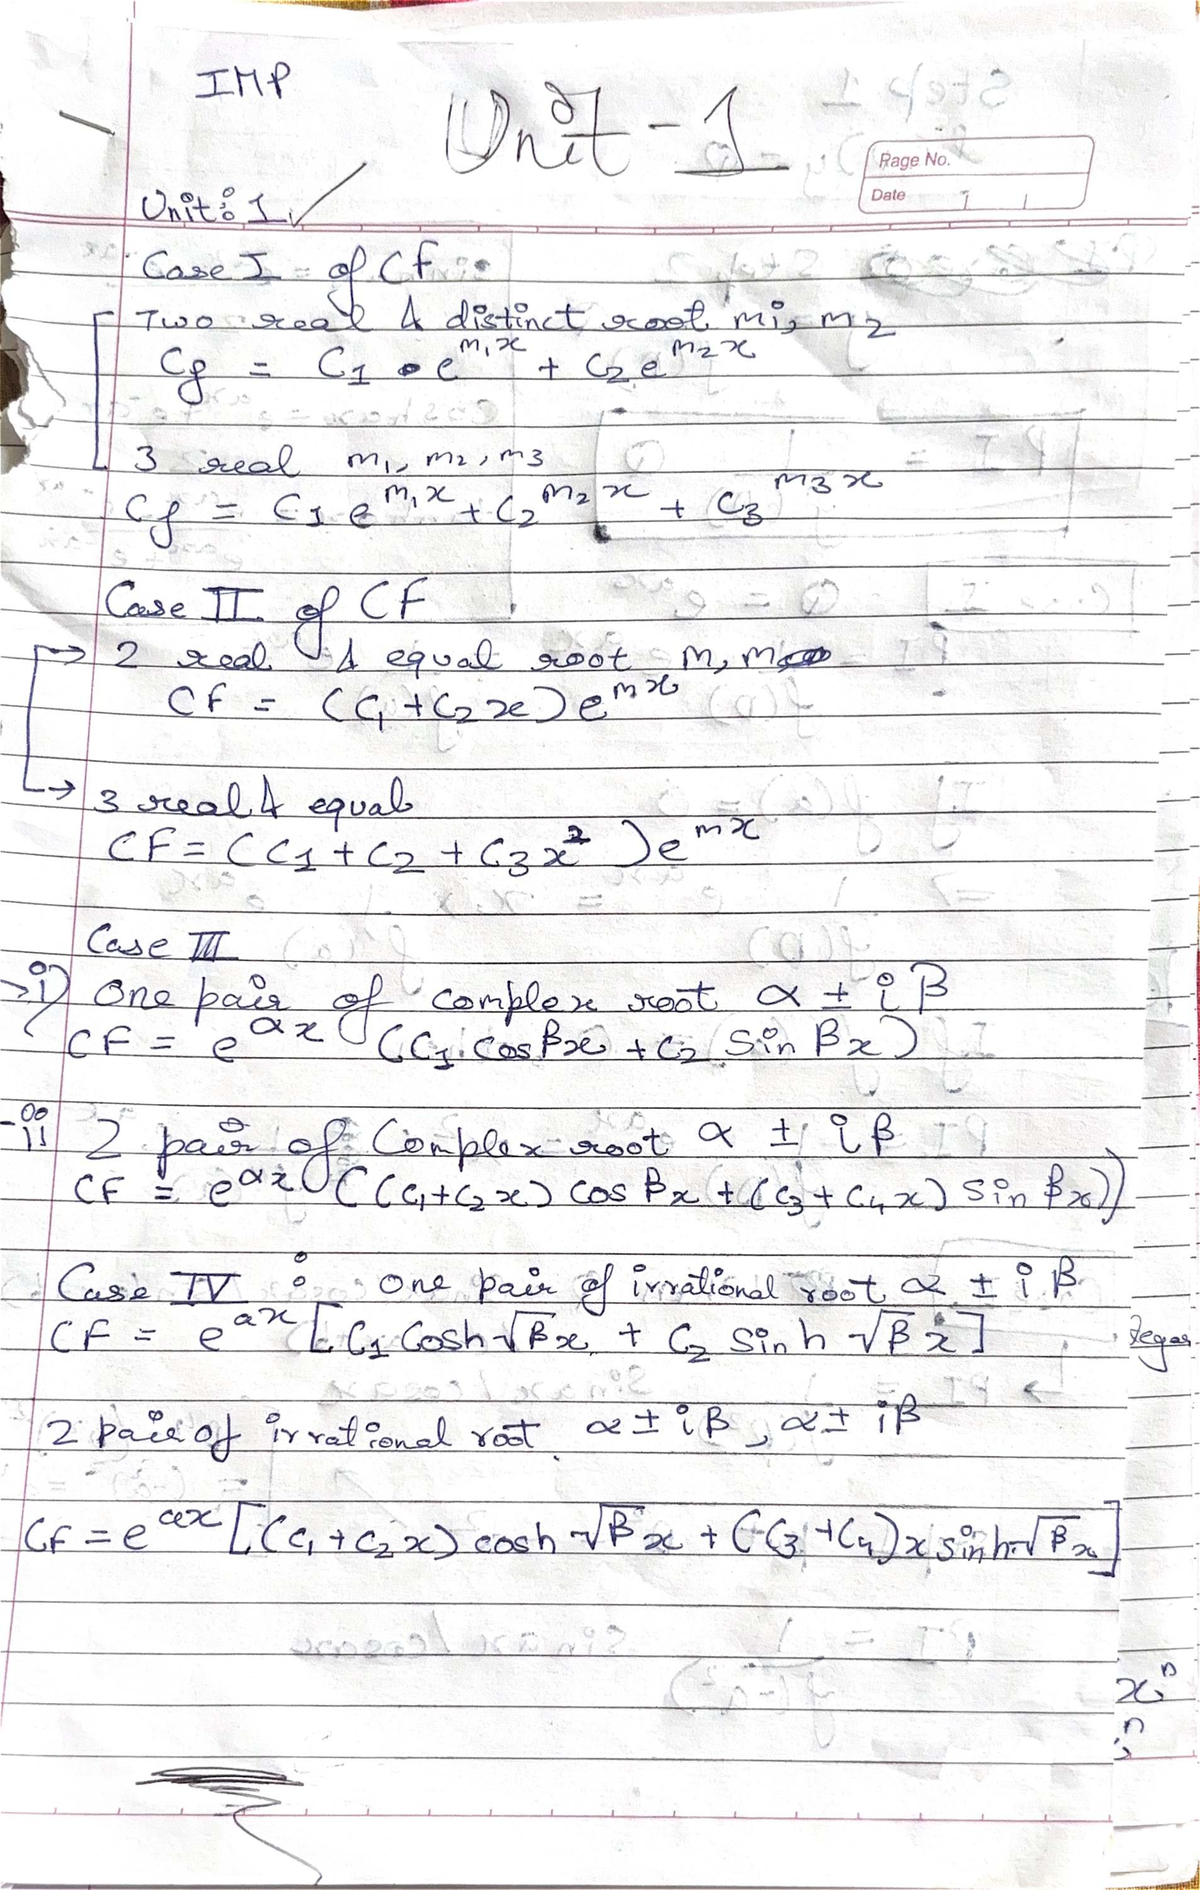 IMP
Unit-1
Page No.
Date
Unit: 1 ✓
Case I of CF
Two real & distinct root m1, m2
CF = C1 e^m1x + C2 e^m2x
3 real m1, m2, m3
CF = C1 e^m1x + C2^m2x + C3^m3x
Case II of CF
→ 2 real & equal root m, m
CF = (C1 + C2 x) e^mx
→ 3 real & equal
CF = (C1 + C2 + C3 x²) e^mx
Case III
→ i) One pair of complex root α ± iβ
CF = e^αx (C1 cos βx + C2 sin βx)
- ii 2 pair of Complex root α ± iβ
CF = e^αx ((C1+C2x) cos βx + (C3 + C4x) sin βx))
Case IV : One pair of irrational root α ± iβ
CF = e^ax [C1 Cosh √βx + C2 sinh √βx]
2 pair of irrational root α ± iβ, α ± iβ
CF = e^αx [(C1 + C2x) cosh √βx + (C3 + C4)x sinh √βx]
x^n